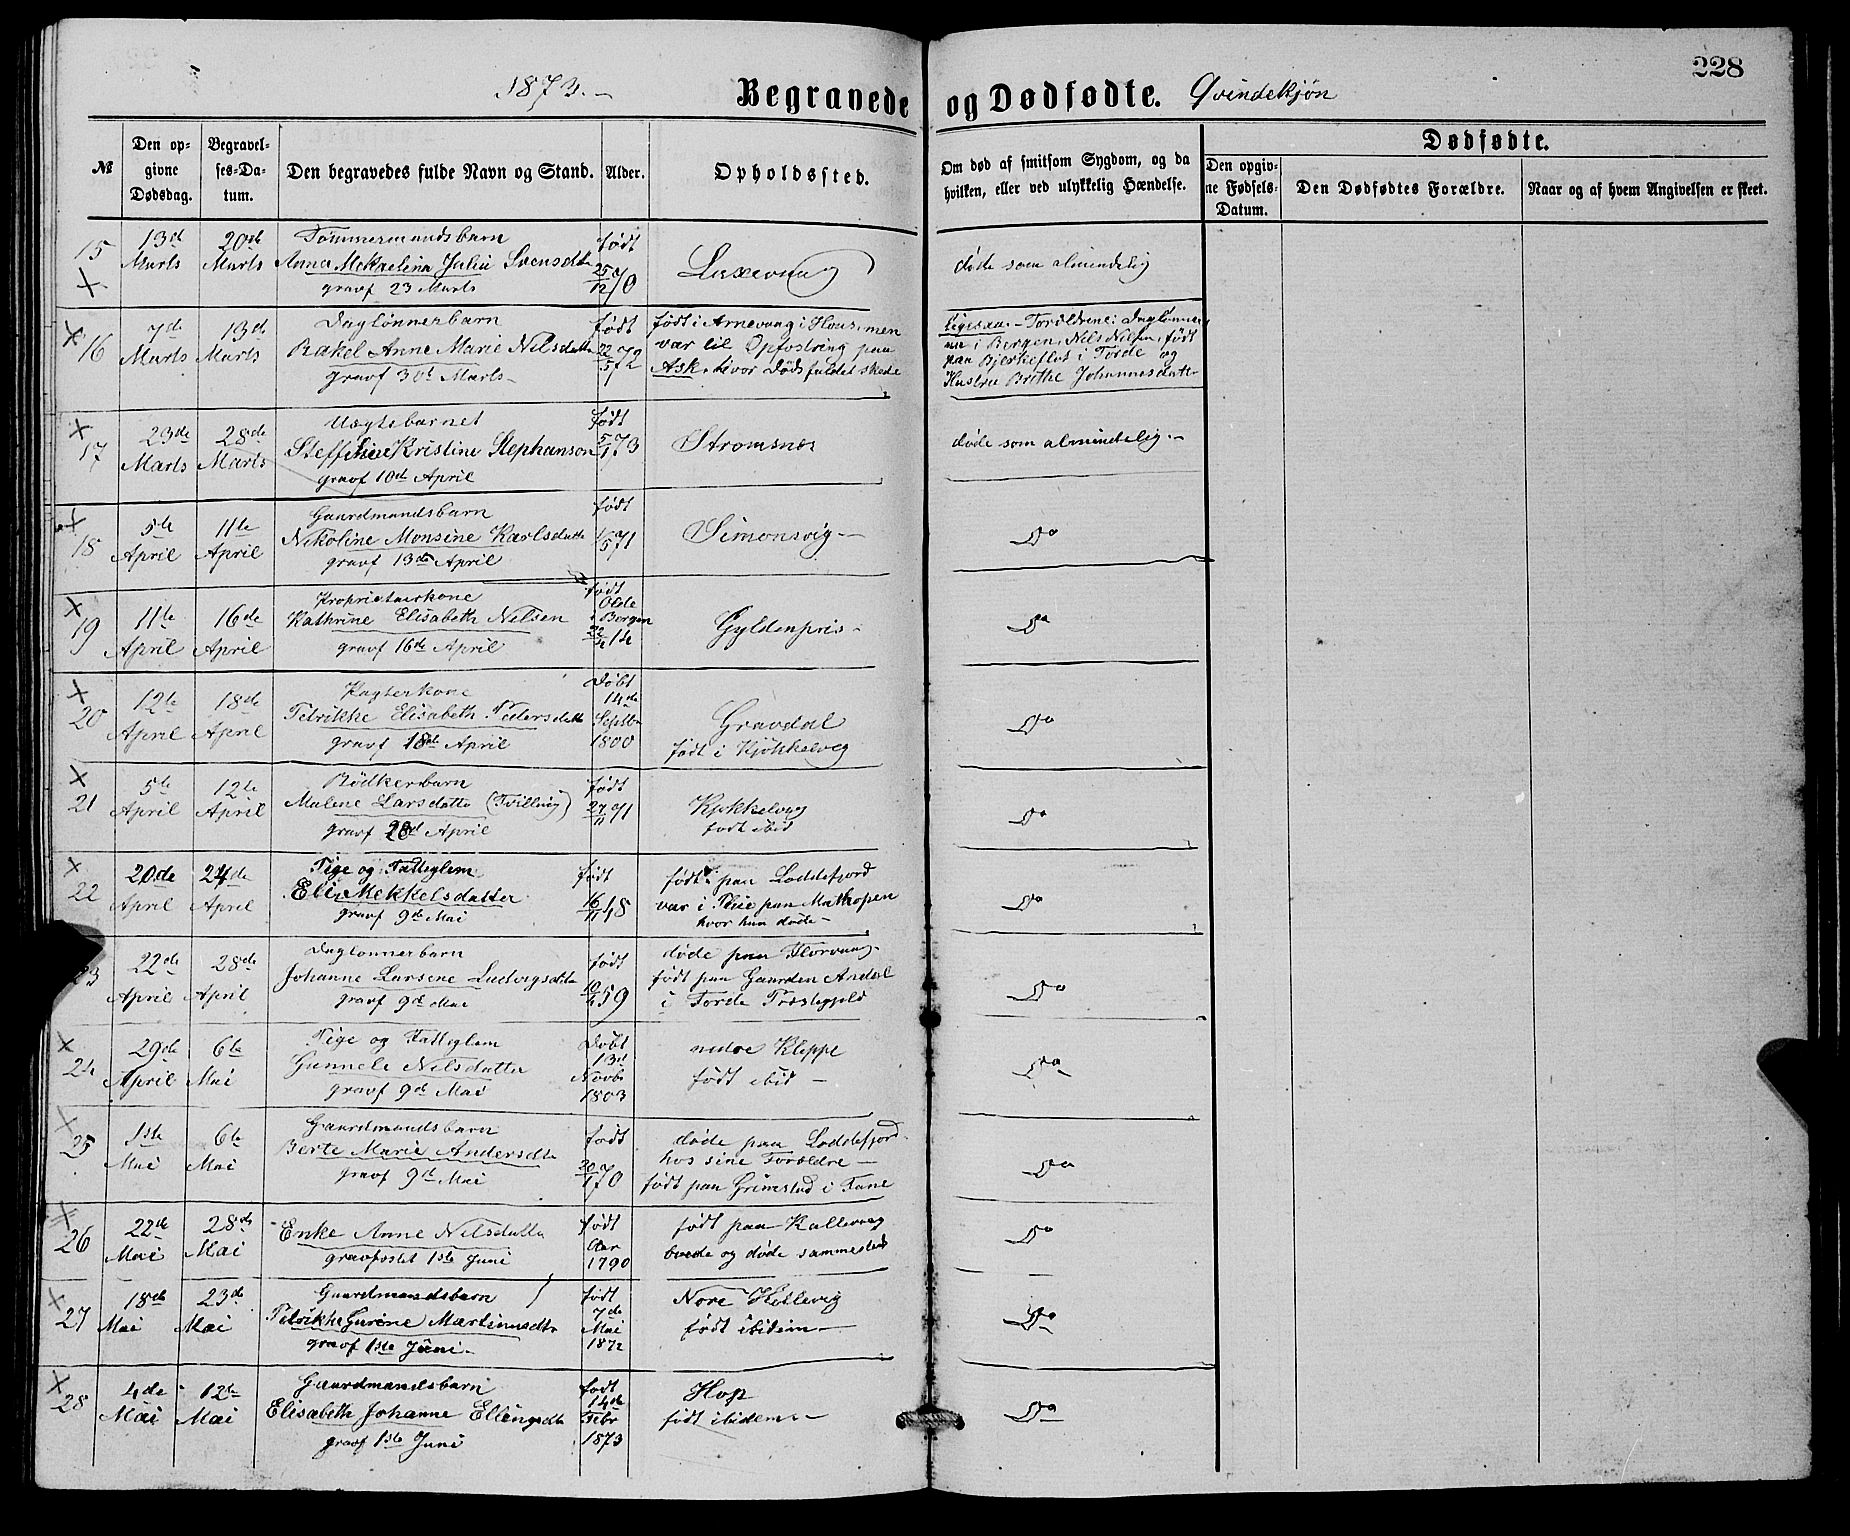 228
1873.
Begravede og Dødfødte. Qvindekjøn
№
Den opgivne Dødsdag.
Begravelses-Datum.
Den begravedes fulde Navn og Stand.
Alder.
Opholdssted.
Om død af smitsom Sygdom, og da hvilken, eller ved ulykkelig Hændelse.
Dødfødte.
Den opgivne Fødsels-Datum.
Den Dødfødtes Forældre.
Naar og af hvem Angivelsen er skeet.
15 13d Marts 20de Marts
Tømmermandsbarn
Anna Mekaelina Julie Svensdtr
gravf 23 Marts
født 25/12 70
døde som almindelig
16 7de Marts 13de Marts
Daglønnerbarn
Rakel Anne Marie Nilsdatter
gravf 30t Marts
født 22/5 72
født i Arnevaag i Hous, men
var til Opfostring paa
Ask, hvor Dødsfaldet skede
ligesaa. Forældrene: Daglønner
i Bergen, Nils Nilsen, født
paa Bjerkeflot i Førde og
Hustru Brithe Johannesdatter
17 23de Marts 28de Marts
Uægtebarnet
Steffine Kristine Stephansen
gravf 10de April
født 5/1 73
Strømsnes
døde som almindelig.
18 5te April 11te April
Gaardmandsbarn
Nikoline Monsine Karlsdatter
gravf 13de April
født 1/5 71
Simonsvig
Do
19 11te April 16de April
Proprietairkone
Kathrine Elisabeth Nilsen
gravf 16de April
født Olde i Bergen
Gyldenpris
Do
20 12te April 18de April
Kagterkone
Petrikke Elisabeth Pedersdatter
gravf 18de April
Døbt 14de Septbr 1800
Gravdal
født i Kjøkkelvig
Do
21 5te April 12te April
Bødkerbarn
Malene Larsdatter (Tvilling)
gravf 28de April
født 27/11 71
Kjøkkelvig
født ibid
Do
22 20de April 24de April
Pige og Fattiglem
Eli Mekkelsdatter
gravf 9de Mai
født 16/11 48
født paa Loddefjord
var i Pleie paa Mathopen
hvor hun døde
Do
23 22de April 28de April
Daglønnerbarn
Johanne Larsene Ludvigsdtr
gravf 9de Mai
født 10/4 59
døde paa Florvaag.
født paa Gaarden Andal
i Førde Præstegjeld
Do
24 29de April 6te Mai
Pige og Fattiglem
Gunnele Nilsdatter
gravf 9de Mai
Døbt 13d Novbr 1803
nedre Kleppe
født ibid
Do
25 1ste Mai 6te Mai
Gaardmandsbarn
Berte Marie Andersdtr
gravf 9de Mai
født 20/1 70
døde paa Loddefjord
hos sine Forældre
født paa Grimstad i Fane
Do
26 22de Mai 28de Mai
Enke Anne Nilsdatter
gravfæstet 1ste Juni
født Aar 1790
født paa Kallevaag
boede og døde sammested
Do
27 18de Mai 23de Mai
Gaardmandsbarn
Petrikke Gurine Martinusdtr
gravf 1ste Juni.
født 7de Mai 1872
Nore Killevig
født ibidem
Do
28 4de Mai 12te Mai
Gaardmandsbarn
Elisabeth Johanne Ellingsdtr
gravf 1ste Juni
født 14de Febr 1873
Hop
født ibidem
Do